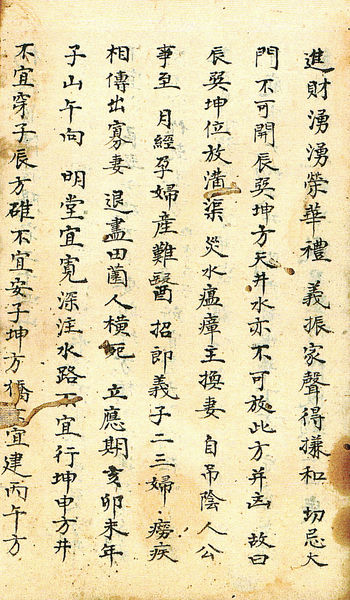 進財湧湧榮華禮 義振家聲得攝和 切忌大
門不可開辰巽坤方天井水亦不可放此方并出 故曰
辰巽坤位放溝渠 災水瘟瘴主換妻 自吊陰人公
事至 月經孕婦産難醫 招郎義子二三婦 癆疾
相傳出寡妻 退盡田園人橫死 立應期亥卯未年
子山午向 明堂宜寬深注水路 宜行坤申方井
不宜穿子辰方碓不宜安子坤方 宜建丙午方